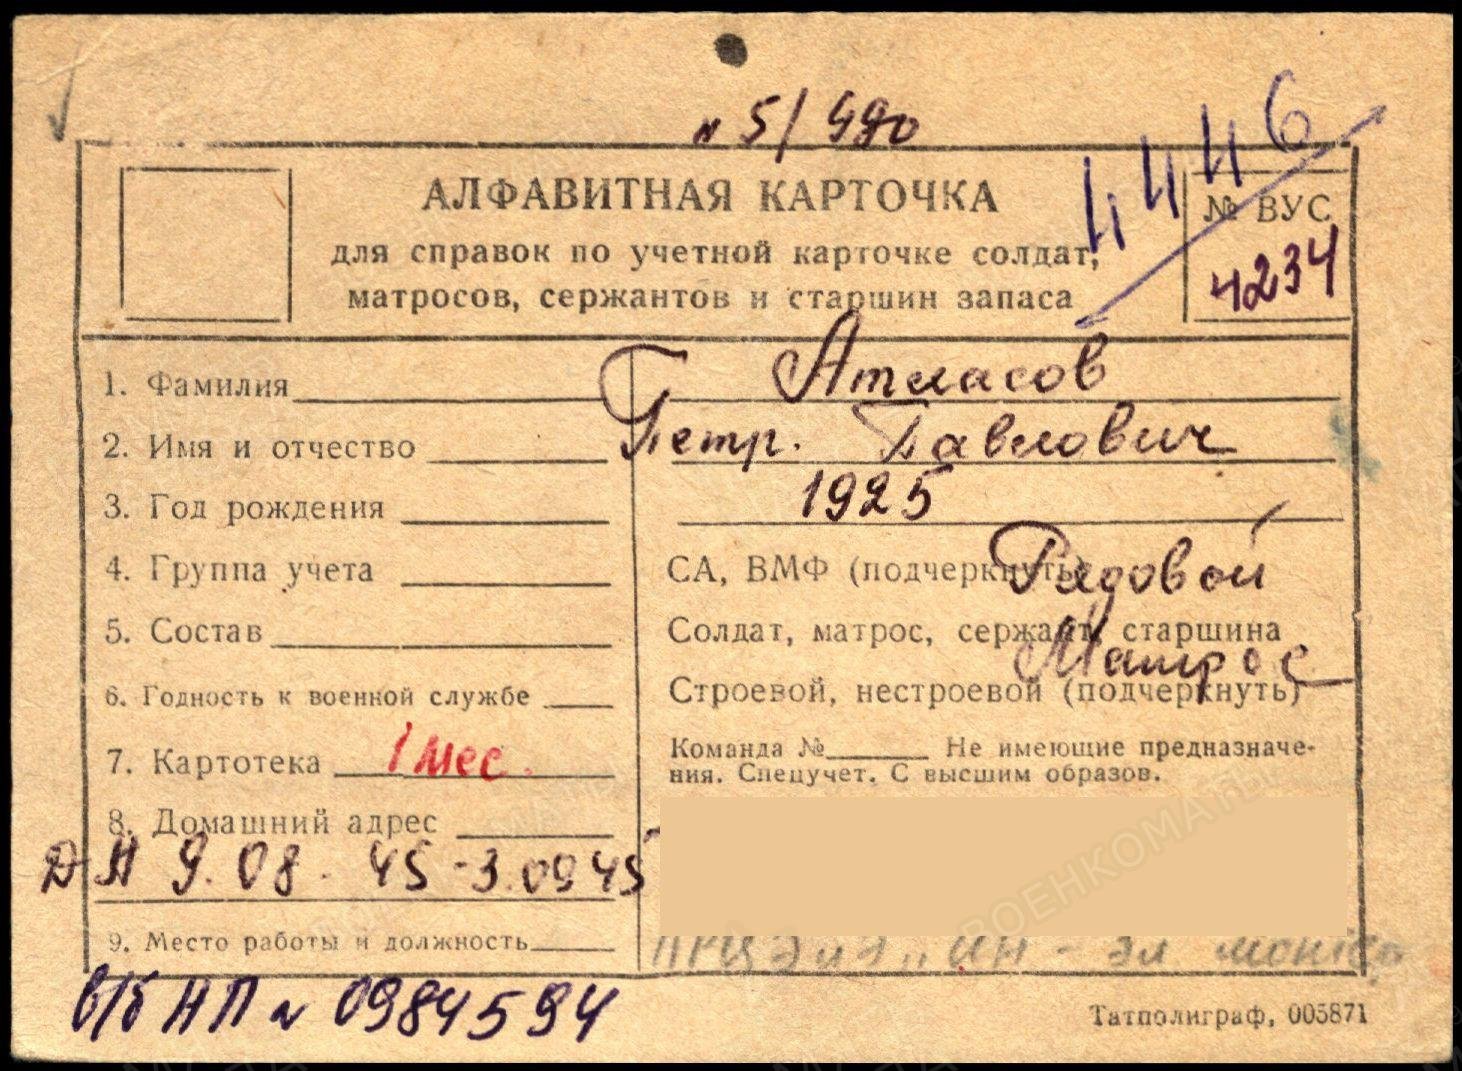 № 5/490
4446
АЛФАВИТНАЯ КАРТОЧКА
№ ВУС
для справок по учетной карточке солдат,
4234
матросов, сержантов и старшин запаса
1. Фамилия Атласов
2. Имя и отчество Петр. Павлович
3. Год рождения 1925
4. Группа учета СА, ВМФ (подчеркнуть) Рядовой
5. Состав Солдат, матрос, сержант, старшина
Матрос
6. Годность к военной службе Строевой, нестроевой (подчеркнуть)
7. Картотека 1 мес. Команда № Не имеющие предназначе-
ния. Спецучет. С высшим образов.
8. Домашний адрес
ДА 9.08.45-3.0945
9. Место работы и должность
в/б НП № 0984594
Татполиграф, 005871